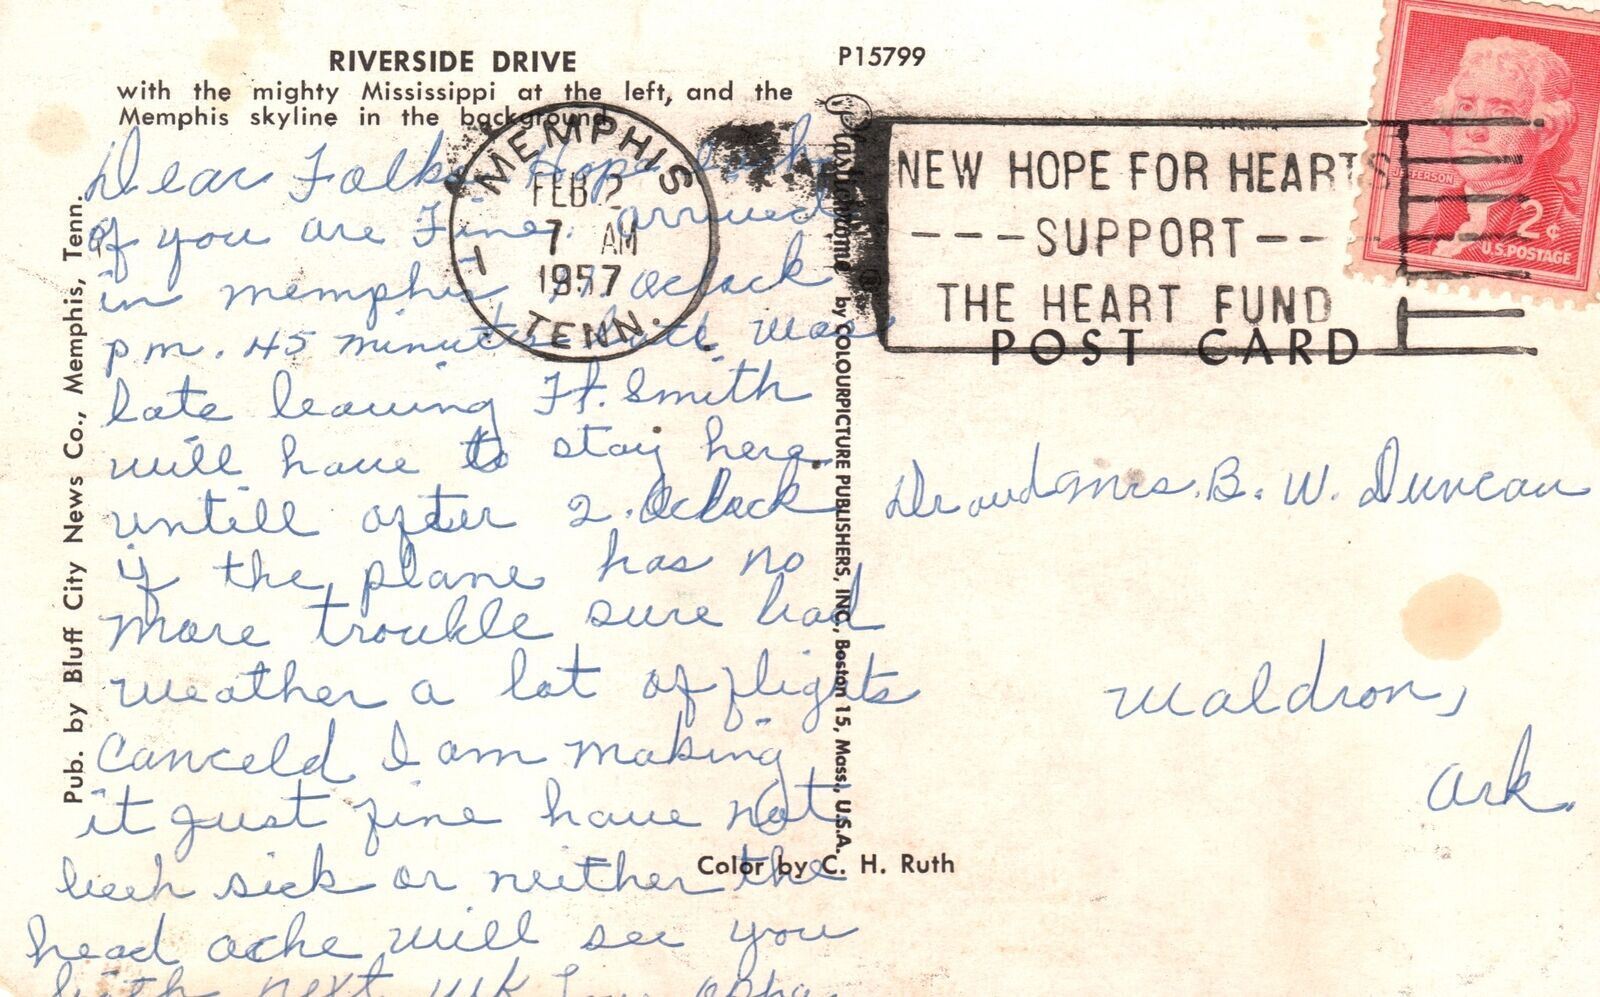 RIVERSIDE DRIVE
with the mighty Mississippi at the left, and the
Memphis skyline in the background
P15799
Pub. by Bluff City News Co., Memphis, Tenn.
Plastichrome ® by COLOURPICTURE PUBLISHERS, INC., Boston 15, Mass., U.S.A.
Color by C. H. Ruth
POST CARD
MEMPHIS
1
FEB 2
7 AM
1957
TENN.
NEW HOPE FOR HEARTS
---SUPPORT---
THE HEART FUND
JEFFERSON
2¢
U.S. POSTAGE
Dear Folks Hope both
of you are Fine. arrived
in memphis 11 oclock
pm. 45 minuts late was
late leaving Ft. Smith
will have to stay here
untill after 2. Oclock
if the plane has no
more trouble sure bad
weather a lot of flights
canceld I am making
it just fine have not
been sick or neither the
head ache will see you
both next wk
Dr and Mrs. B. W. Duncan
Waldron,
Ark.